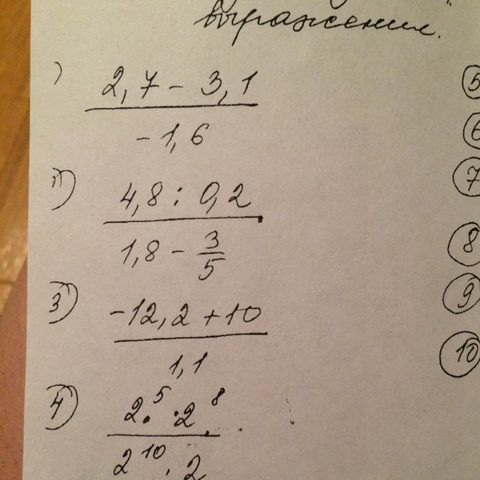 выражения.
1) (2,7 - 3,1) / (-1,6)
2) (4,8 : 0,2) / (1,8 - 3/5)
3) (-12,2 + 10) / 1,1
4) (2⁵ · 2⁸) / (2¹⁰ · 2)
5
6
7
8
9
10